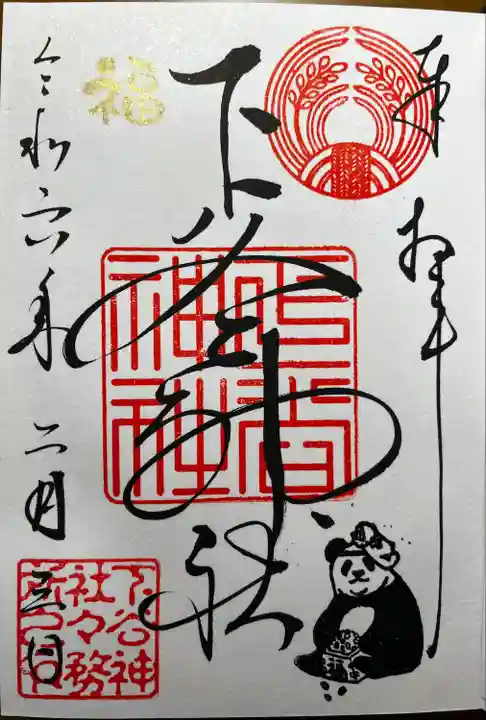 奉拝
下谷神社
下谷神社
福
令和六年 二月 三日
下谷神
社々務
所之印